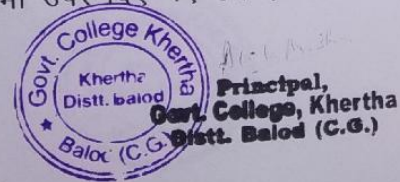 Govt. College Khertha
Khertha
Distt. balod
★ Baloc (C.G.)
Principal,
Govt. College, Khertha
Distt. Balod (C.G.)